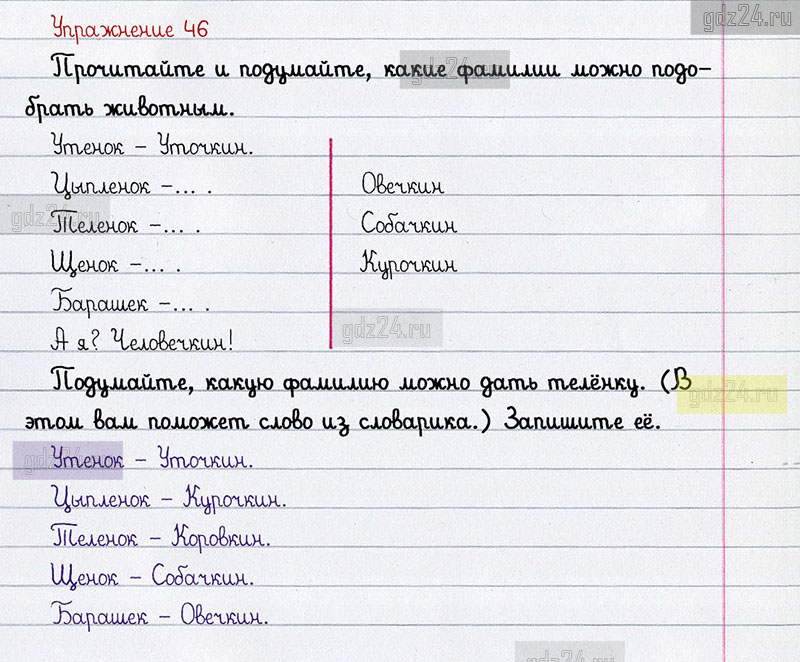 gdz24.ru
Упражнение 46
Прочитайте и подумайте, какие фамилии можно подо-
брать животным.
Утенок – Уточкин.
Цыпленок –... . Овечкин
Теленок –... . Собачкин
Щенок –... . Курочкин
Барашек –... .
А я? Человечкин!
Подумайте, какую фамилию можно дать телёнку. (В
этом вам поможет слово из словарика.) Запишите её.
Утенок – Уточкин.
Цыпленок – Курочкин.
Теленок – Коровкин.
Щенок – Собачкин.
Барашек – Овечкин.
gdz24.ru